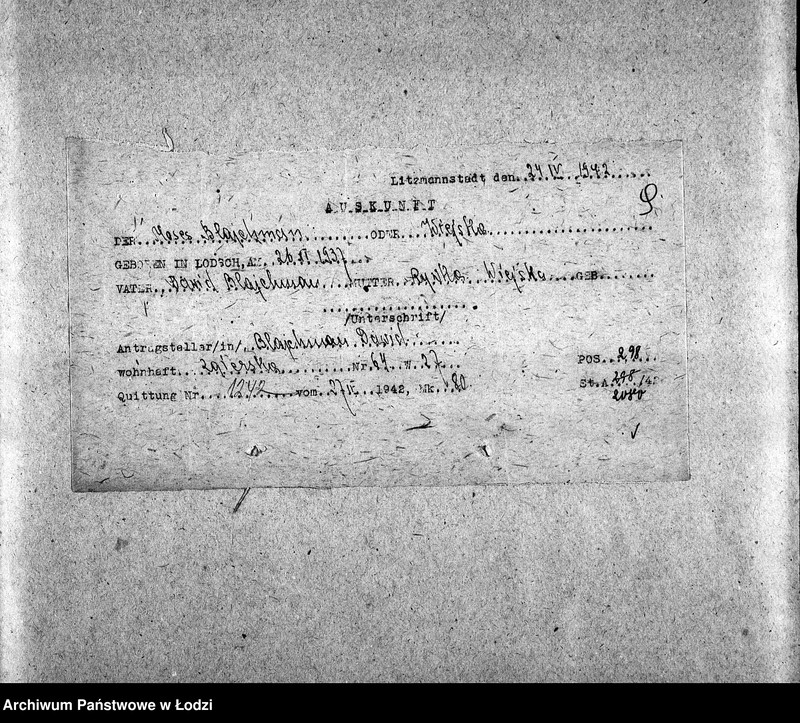 Litzmannstadt den..24 IV. 1942......
AUSKUNFT
DER...Moses Blajchman........ODER...Wiejska.....................
GEBOREN IN LODSCH, AM..26.VI.1937...
VATER..Dawid Blajchman...MUTTER..Rywka..Wiejska...GEB........
/Unterschrift/
Antragsteller/in/..Blajchman Dawid.......
wohnhaft...Zgierska..........Nr.64..W.27...
POS..298...
Quittung Nr....1242.....vom..27 IV. 1942, Mk..80
St.A.298./42
2080
Archiwum Państwowe w Łodzi